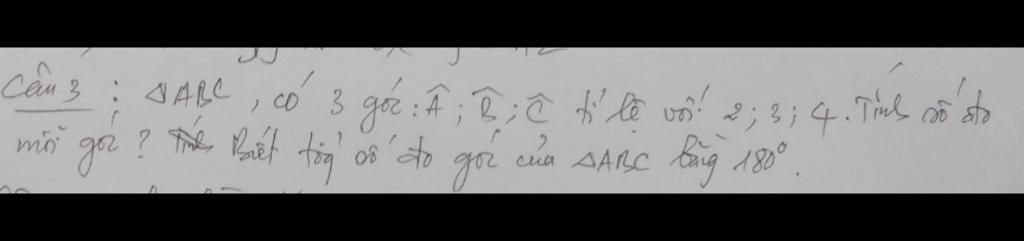 Câu 3 : △ABC, có 3 góc: Â; B̂; Ĉ tỉ lệ với 2; 3; 4. Tính số đo
mỗi góc? Biết tổng số đo góc của △ABC bằng 180°.